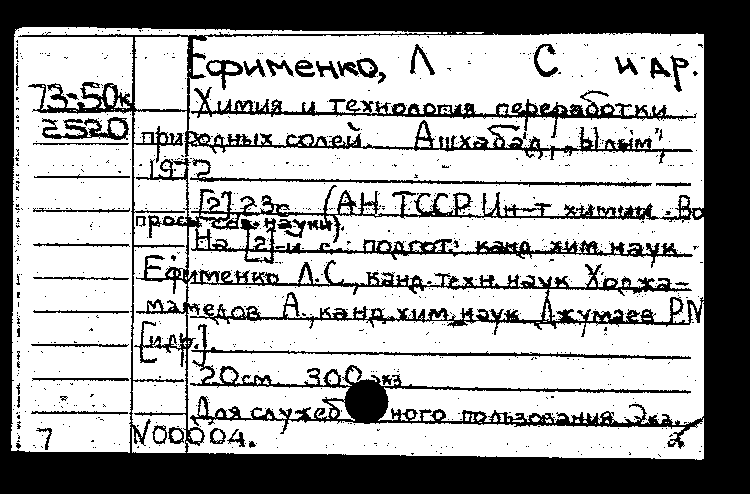 Ефименко, Л. С. и др.
73-50к Химия и технология переработки
2520 природных солей. Ашхабад, "Ылым",
1972
[2] 23с. (АН ТССР. Ин-т химии. Во
просы сов. науки).
На [2]-й с.: подгот: канд. хим. наук
Ефименко Л.С., канд. техн. наук Ходжа-
мамедов А., канд. хим. наук Джумаев Р.М
[и др.].
20см 300 экз.
Для служебного пользования. Экз.
7 N00004. 2